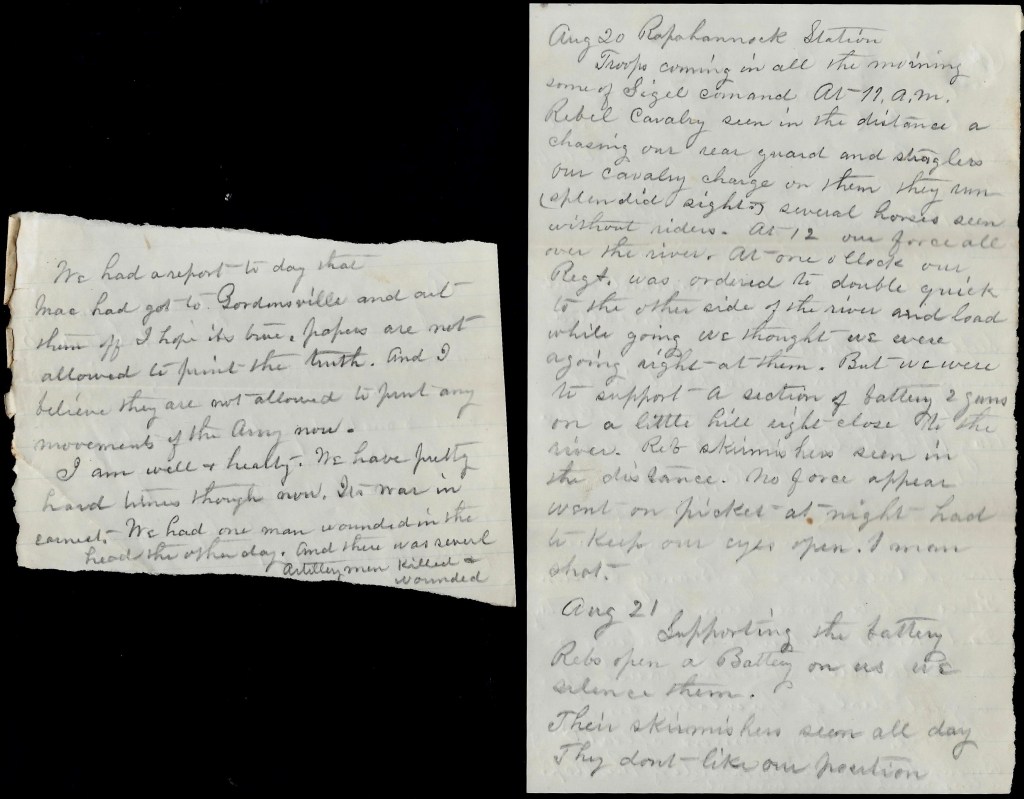 We had a report to day that
Mac had got to Gordonsville and cut
them off I hope its true, papers are not
allowed to print the truth. And I
believe they are not allowed to print any
movements of the Army now.
I am well & healty. We have pretty
hard times though now. Its war in
earnest. We had one man wounded in the
head the other day. And there was severl
Artillerymen killed &
wounded
Aug 20 Rapahannock Station
Troops coming in all the morning
some of Sigel comand At 11, A, M.
Rebel Cavalry seen in the distance a
chasing our rear guard and straglers
our cavalry charge on them they run
(splendid sight) several horses seen
without riders. At 12 our force all
over the river. At one o'llock our
Regt. was ordered to double quick
to the other side of the river and load
while going we thought we were
agoing right at them. But we were
to support a section of battery 2 guns
on a little hill right close to the
river. Reb skirmishers seen in
the distance. No force appear
went on picket at night had
to keep our eyes open. 1 man
shot.
Aug 21
Supporting the battery
Rebs open a Battery on us we
silence them.
Their skirmishers seen all day
They dont like our position